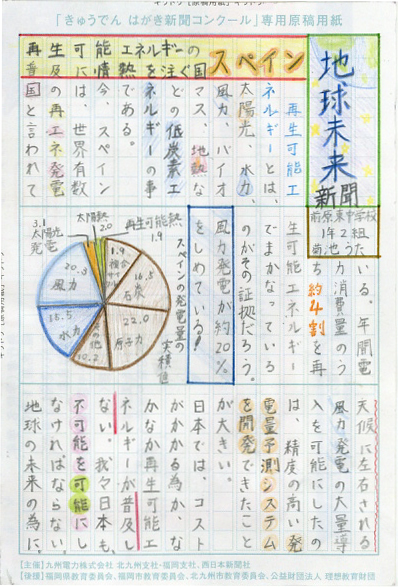 「きゅうでん はがき新聞コンクール」専用原稿用紙
地球未来新聞
前原東中学校
1年2組
菊池うた
再生可能エネルギーの
普及に情熱を注ぐ国
スペイン
再生可能エ
ネルギーとは、
太陽光、水力、
風力、バイオ
マス、地熱な
どの低炭素エ
ネルギーの事
である。
今、スペイン
は、世界有数
の再エネ発電
国と言われて
いる。年間電
力消費量のう
ち約4割を再
生可能エネルギー
でまかなっている
のがその証拠だろう。
風力発電が約20%
をしめている!
スペインの発電量の
実績値
再生可能熱
1.9
太陽熱
2.0
3.1
太陽光
発電
20.3
風力
15.5
水力
その他
10.2
22.0
原子力
16.5
石炭
天候に左右される
風力発電の大量導
入を可能にしたの
は、精度の高い発
電量予測システム
を開発できたこと
が大きい。
日本では、コスト
がかかる為か、な
かなか再生可能エ
ネルギーが普及し
ない。我々日本も、
不可能を可能にし
なければならない。
地球の未来の為に。
[主催]九州電力株式会社 北九州支社・福岡支社、西日本新聞社
[後援]福岡県教育委員会、福岡市教育委員会、北九州市教育委員会、公益財団法人 理想教育財団